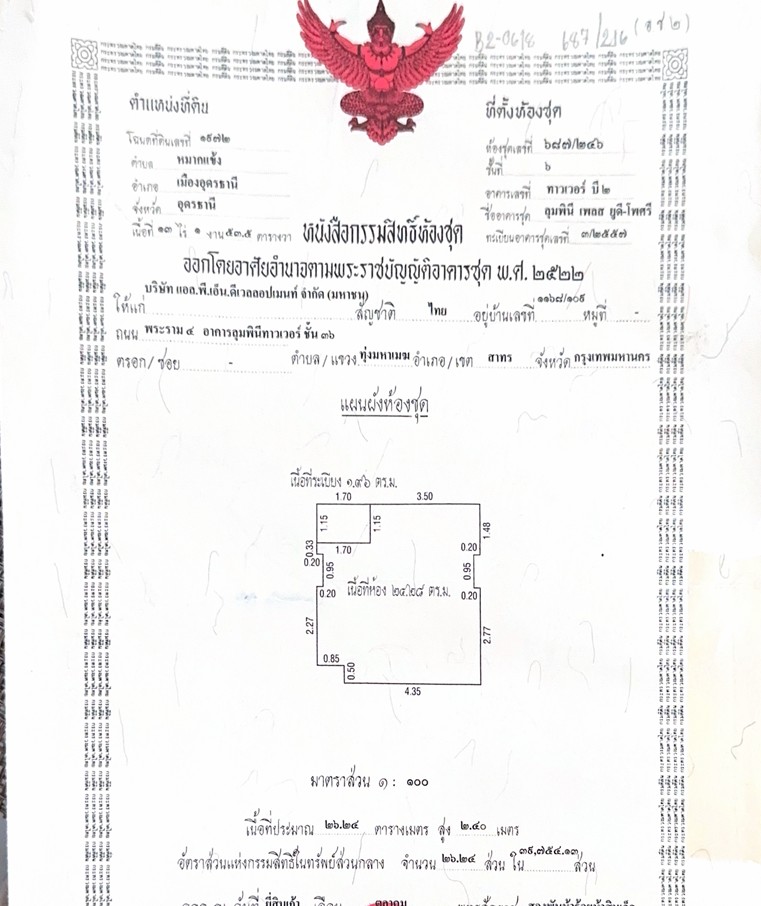 B2-0618 687/216 (อช ๒)
ตำแหน่งที่ดิน
โฉนดที่ดินเลขที่ ๑๙๗๒
ตำบล หมากแข้ง
อำเภอ เมืองอุดรธานี
จังหวัด อุดรธานี
เนื้อที่ ๑๓ ไร่ ๑ งาน ๕๓.๕ ตารางวา
ที่ตั้งห้องชุด
ห้องชุดเลขที่ ๖๘๗/๒๔๖
ชั้นที่ ๖
อาคารเลขที่ ทาวเวอร์ บี ๒
ชื่ออาคารชุด ลุมพินี เพลส ยูดี-โพศรี
ทะเบียนอาคารชุดเลขที่ ๓/๒๕๕๗
หนังสือกรรมสิทธิ์ห้องชุด
ออกโดยอาศัยอำนาจตามพระราชบัญญัติอาคารชุด พ.ศ. ๒๕๒๒
ให้แก่ บริษัท แอล.พี.เอ็น.ดีเวลลอปเมนท์ จำกัด (มหาชน) สัญชาติ ไทย อยู่บ้านเลขที่ ๑๑๖๘/๑๐๙ หมู่ที่ -
ถนน พระราม ๔ อาคารลุมพินีทาวเวอร์ ชั้น ๓๖
ตรอก/ซอย - ตำบล/แขวง ทุ่งมหาเมฆ อำเภอ/เขต สาทร จังหวัด กรุงเทพมหานคร
แผนผังห้องชุด
เนื้อที่ระเบียง ๑.๙๖ ตร.ม.
1.70 3.50
1.15 1.15 1.48
0.33 1.70 0.20
0.20 0.95 0.95
เนื้อที่ห้อง ๒๔.๒๘ ตร.ม.
0.20 0.20
2.27 2.77
0.85 0.50
4.35
มาตราส่วน ๑ : ๑๐๐
เนื้อที่ประมาณ ๒๖.๒๔ ตารางเมตร สูง ๒.๔๐ เมตร
อัตราส่วนแห่งกรรมสิทธิ์ในทรัพย์ส่วนกลาง จำนวน ๒๖.๒๔ ส่วน ใน ๓๙,๗๕๔.๑๓ ส่วน